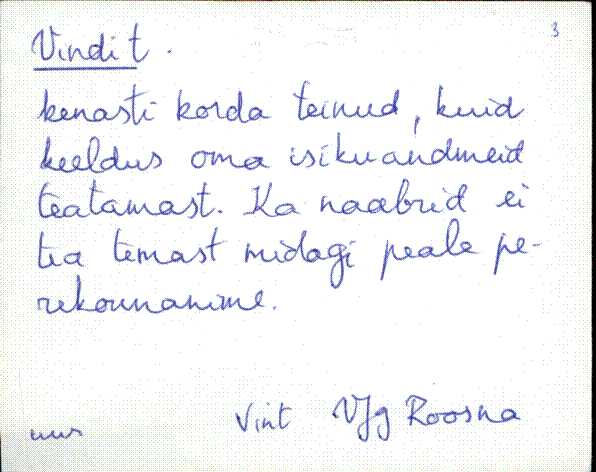 3
Vindi t.
kenasti korda teinud, kuid
keeldus oma isikuandmeid
teatamast. Ka naabrid ei
tea temast midagi peale pe-
rekonnanime.
Vint VJg Roosna
mus